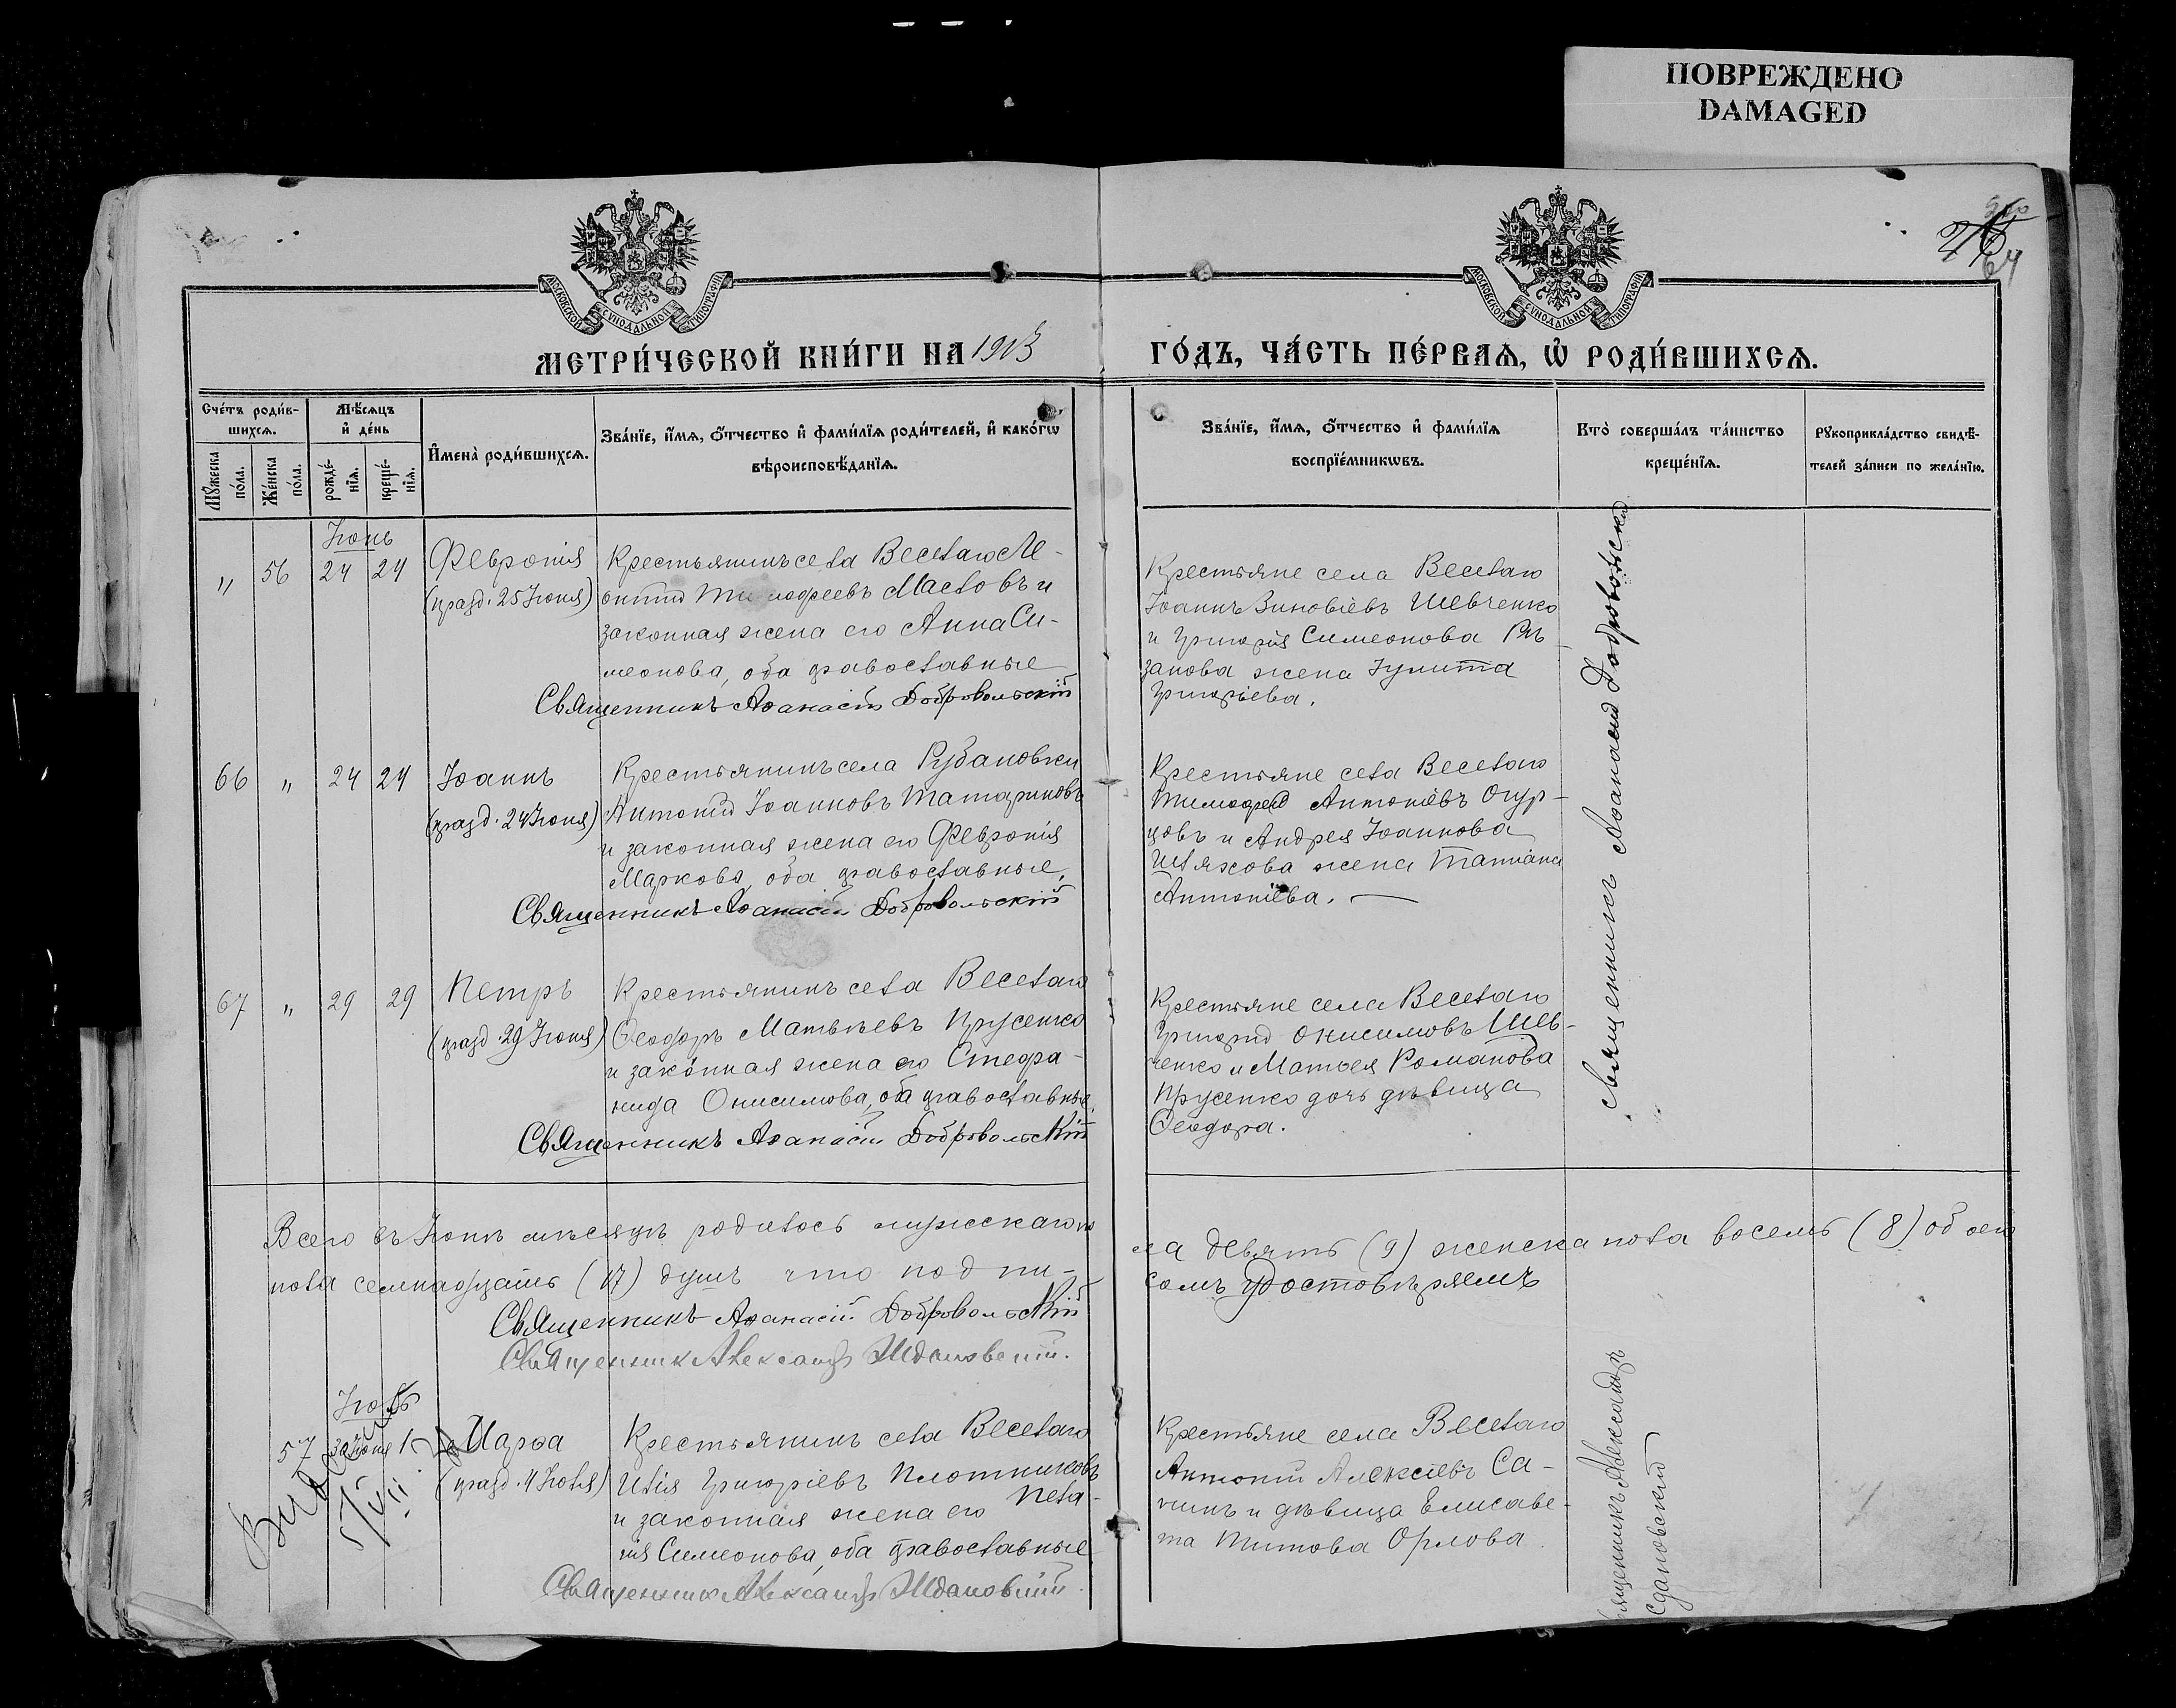 ПОВРЕЖДЕНО
DAMAGED
64
МОСКОВСКОЙ СѴНОДАЛЬНОЙ ТИПОГРАФІИ
МОСКОВСКОЙ СѴНОДАЛЬНОЙ ТИПОГРАФІИ
МЕТРИ́ЧЕСКОЙ КНИ́ГИ НА 1913 ГО́ДЪ, ЧА́СТЬ ПЕ́РВАѦ, Ѡ҆ РОДИ́ВШИХСѦ.
Сче́тъ роди́в-
шихсѧ.
Мꙋ́жеска
по́ла.
Же́нска
по́ла.
Мѣ́сѧцъ
и҆ де́нь
рожде́-
нїѧ.
креще́-
нїѧ.
И҆мена̀ роди́вшихсѧ.
Зва́нїе, и҆́мѧ, ѻ҆́тчество и҆ фами́лїѧ роди́телей, и҆ како́гѡ
вѣроисповѣ́данїѧ.
Зва́нїе, и҆́мѧ, ѻ҆́тчество и҆ фами́лїѧ
воспрїе́мникѡвъ.
Кто̀ соверша́лъ та́инство
креще́нїѧ.
Рꙋкоприкла́дство свидѣ́-
телей за́писи по жела́нїю.
Іюнь
" 56 24 24 Февронія
(празд. 25 Іюня)
Крестьянинъ села Веселаго Ле-
онтій Тимофеевъ Масловъ и
законная жена его Анна Си-
меонова, оба православные
Священникъ Аѳанасій Добровольскій
Крестьяне села Веселаго
Іоаннъ Зиновіевъ Шевченко
и Григорія Симеонова Рѣ-
занова жена Іулитта
Григоріева.
Священникъ Аѳанасій Добровольскій
66 " 24 24 Іоаннъ
(празд. 24 Іюня)
Крестьянинъ села Рубановки
Антоній Іоанновъ Татариновъ
и законная жена его Февронія
Маркова, оба православные.
Священникъ Аѳанасій Добровольскій
Крестьяне села Веселаго
Тимофей Антоніевъ Огур-
цовъ и Андрея Іоаннова
Шляхова жена Татіана
Антоніева.
67 " 29 29 Петръ
(празд. 29 Іюня)
Крестьянинъ села Веселаго
Ѳеодоръ Матвѣевъ Прусенко
и законная жена его Стефа-
нида Онисимова, оба православные.
Священникъ Аѳанасій Добровольскій
Крестьяне села Веселаго
Григорій Онисимовъ Шев-
ченко и Матвея Романова
Прусенко дочь дѣвица
Ѳеодора.
Всего въ Іюнѣ мѣсяцѣ родилось мужскаго по-
ла девять (9) женска пола восемь (8) обоего
пола семнадцать (17) душъ что подпи-
сомъ удостовѣряемъ
Священникъ Аѳанасій Добровольскій
Священник Александр Ждановскій.
Іюль
57 30 Іюня 1 Марѳа
(празд. 4 Іюля)
Крестьянинъ села Веселаго
Илія Григоріевъ Плотниковъ
и законная жена его Пела-
гія Симеонова, оба православные
Священник Александр Ждановскій
Крестьяне села Веселаго
Антоній Алексіевъ Са-
чинъ и дѣвица Елисаве-
та Титова Орлова
Священникъ Александръ
Ждановскій